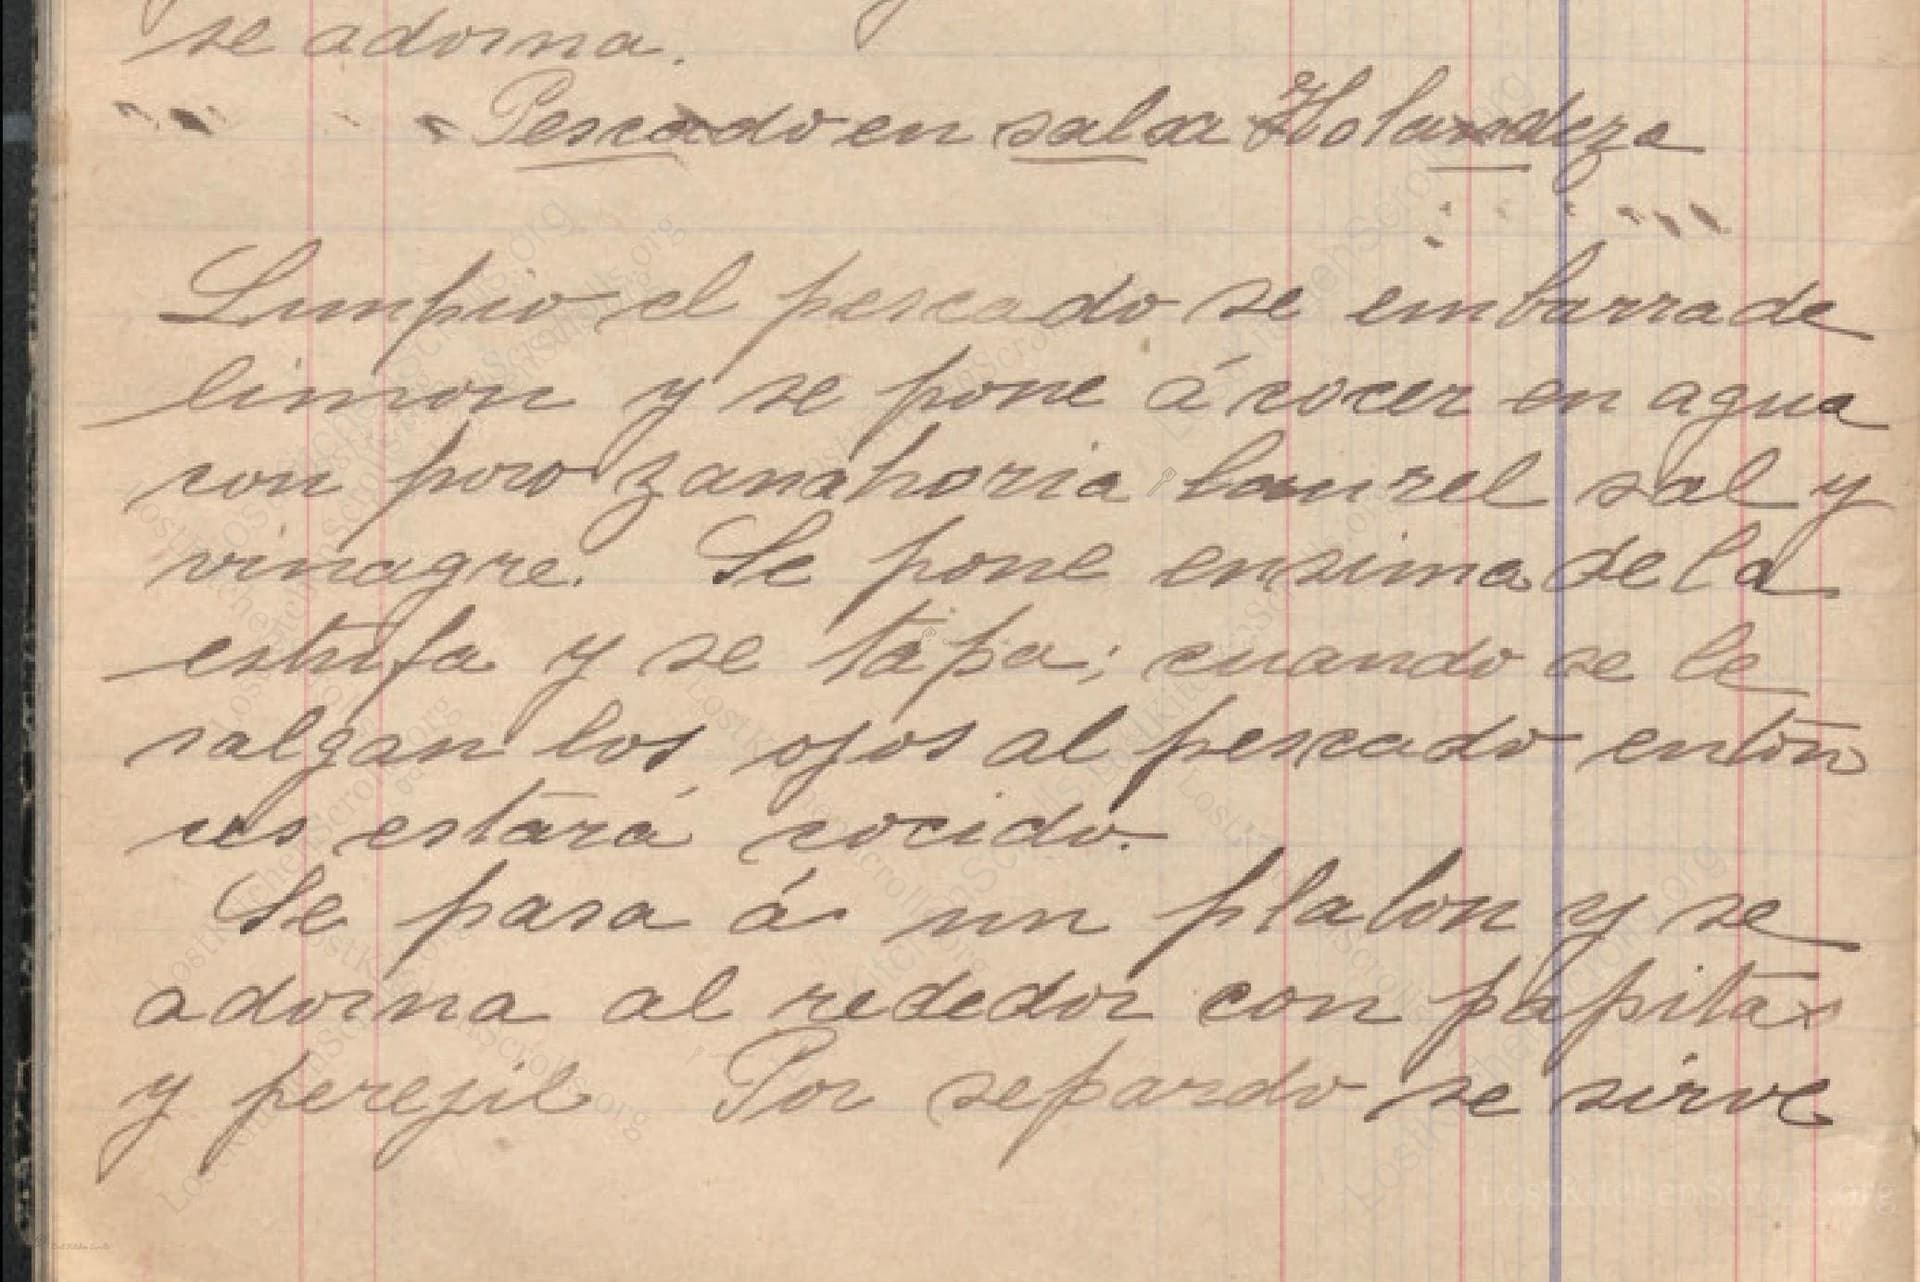 se adorna.
Pescado en salsa Holandeza
Limpio el pescado se embarra de
limon y se pone á cocer en agua
con poro zanahoria laurel sal y
vinagre. Se pone ensima de la
estufa y se tapa; cuando se le
salgan los ojos al pescado enton
ces estará cocido.
Se pasa á un platon y se
adorna al rededor con papitas
y perejil Por separdo se sirve
LostKitchenScrolls.org